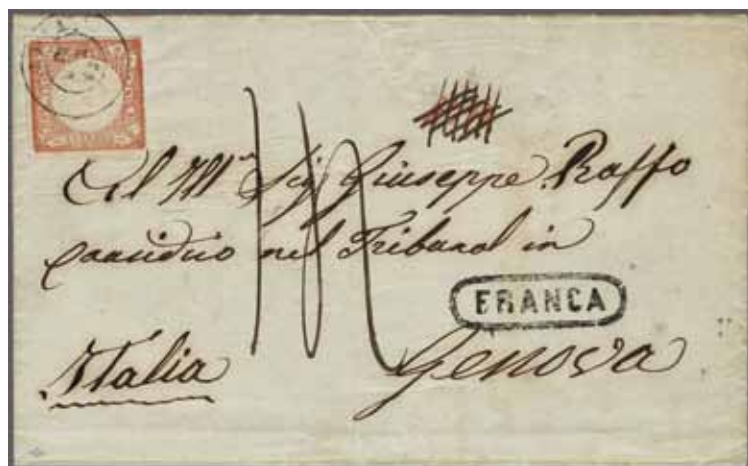 Al Ill.mo Sig Giuseppe Raffo
causidico nel Tribunal in
FRANCA
Genova
Italia